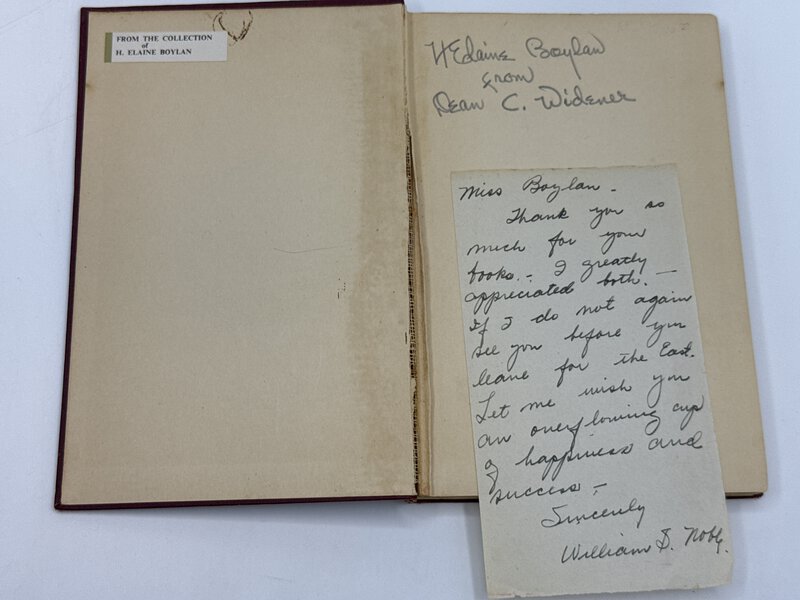 FROM THE COLLECTION
of
H. ELAINE BOYLAN
H Elaine Boylan
from
Dean C. Widener
Miss Boylan -
Thank you so
much for your
books. - I greatly
appreciated both. -
If I do not again
see you before you
leave for the East.
Let me wish you
an overflowing cup
of happiness and
success -
Sincerely
William S. Noble.